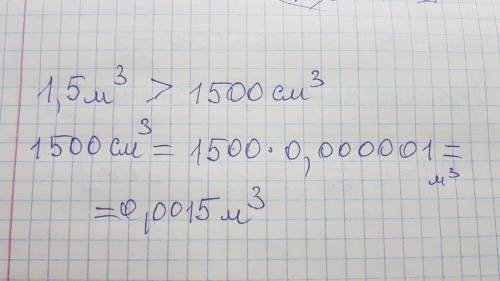 1,5м³ > 1500 см³
1500 см³ = 1500 · 0,000001 =
м³
= 0,0015 м³